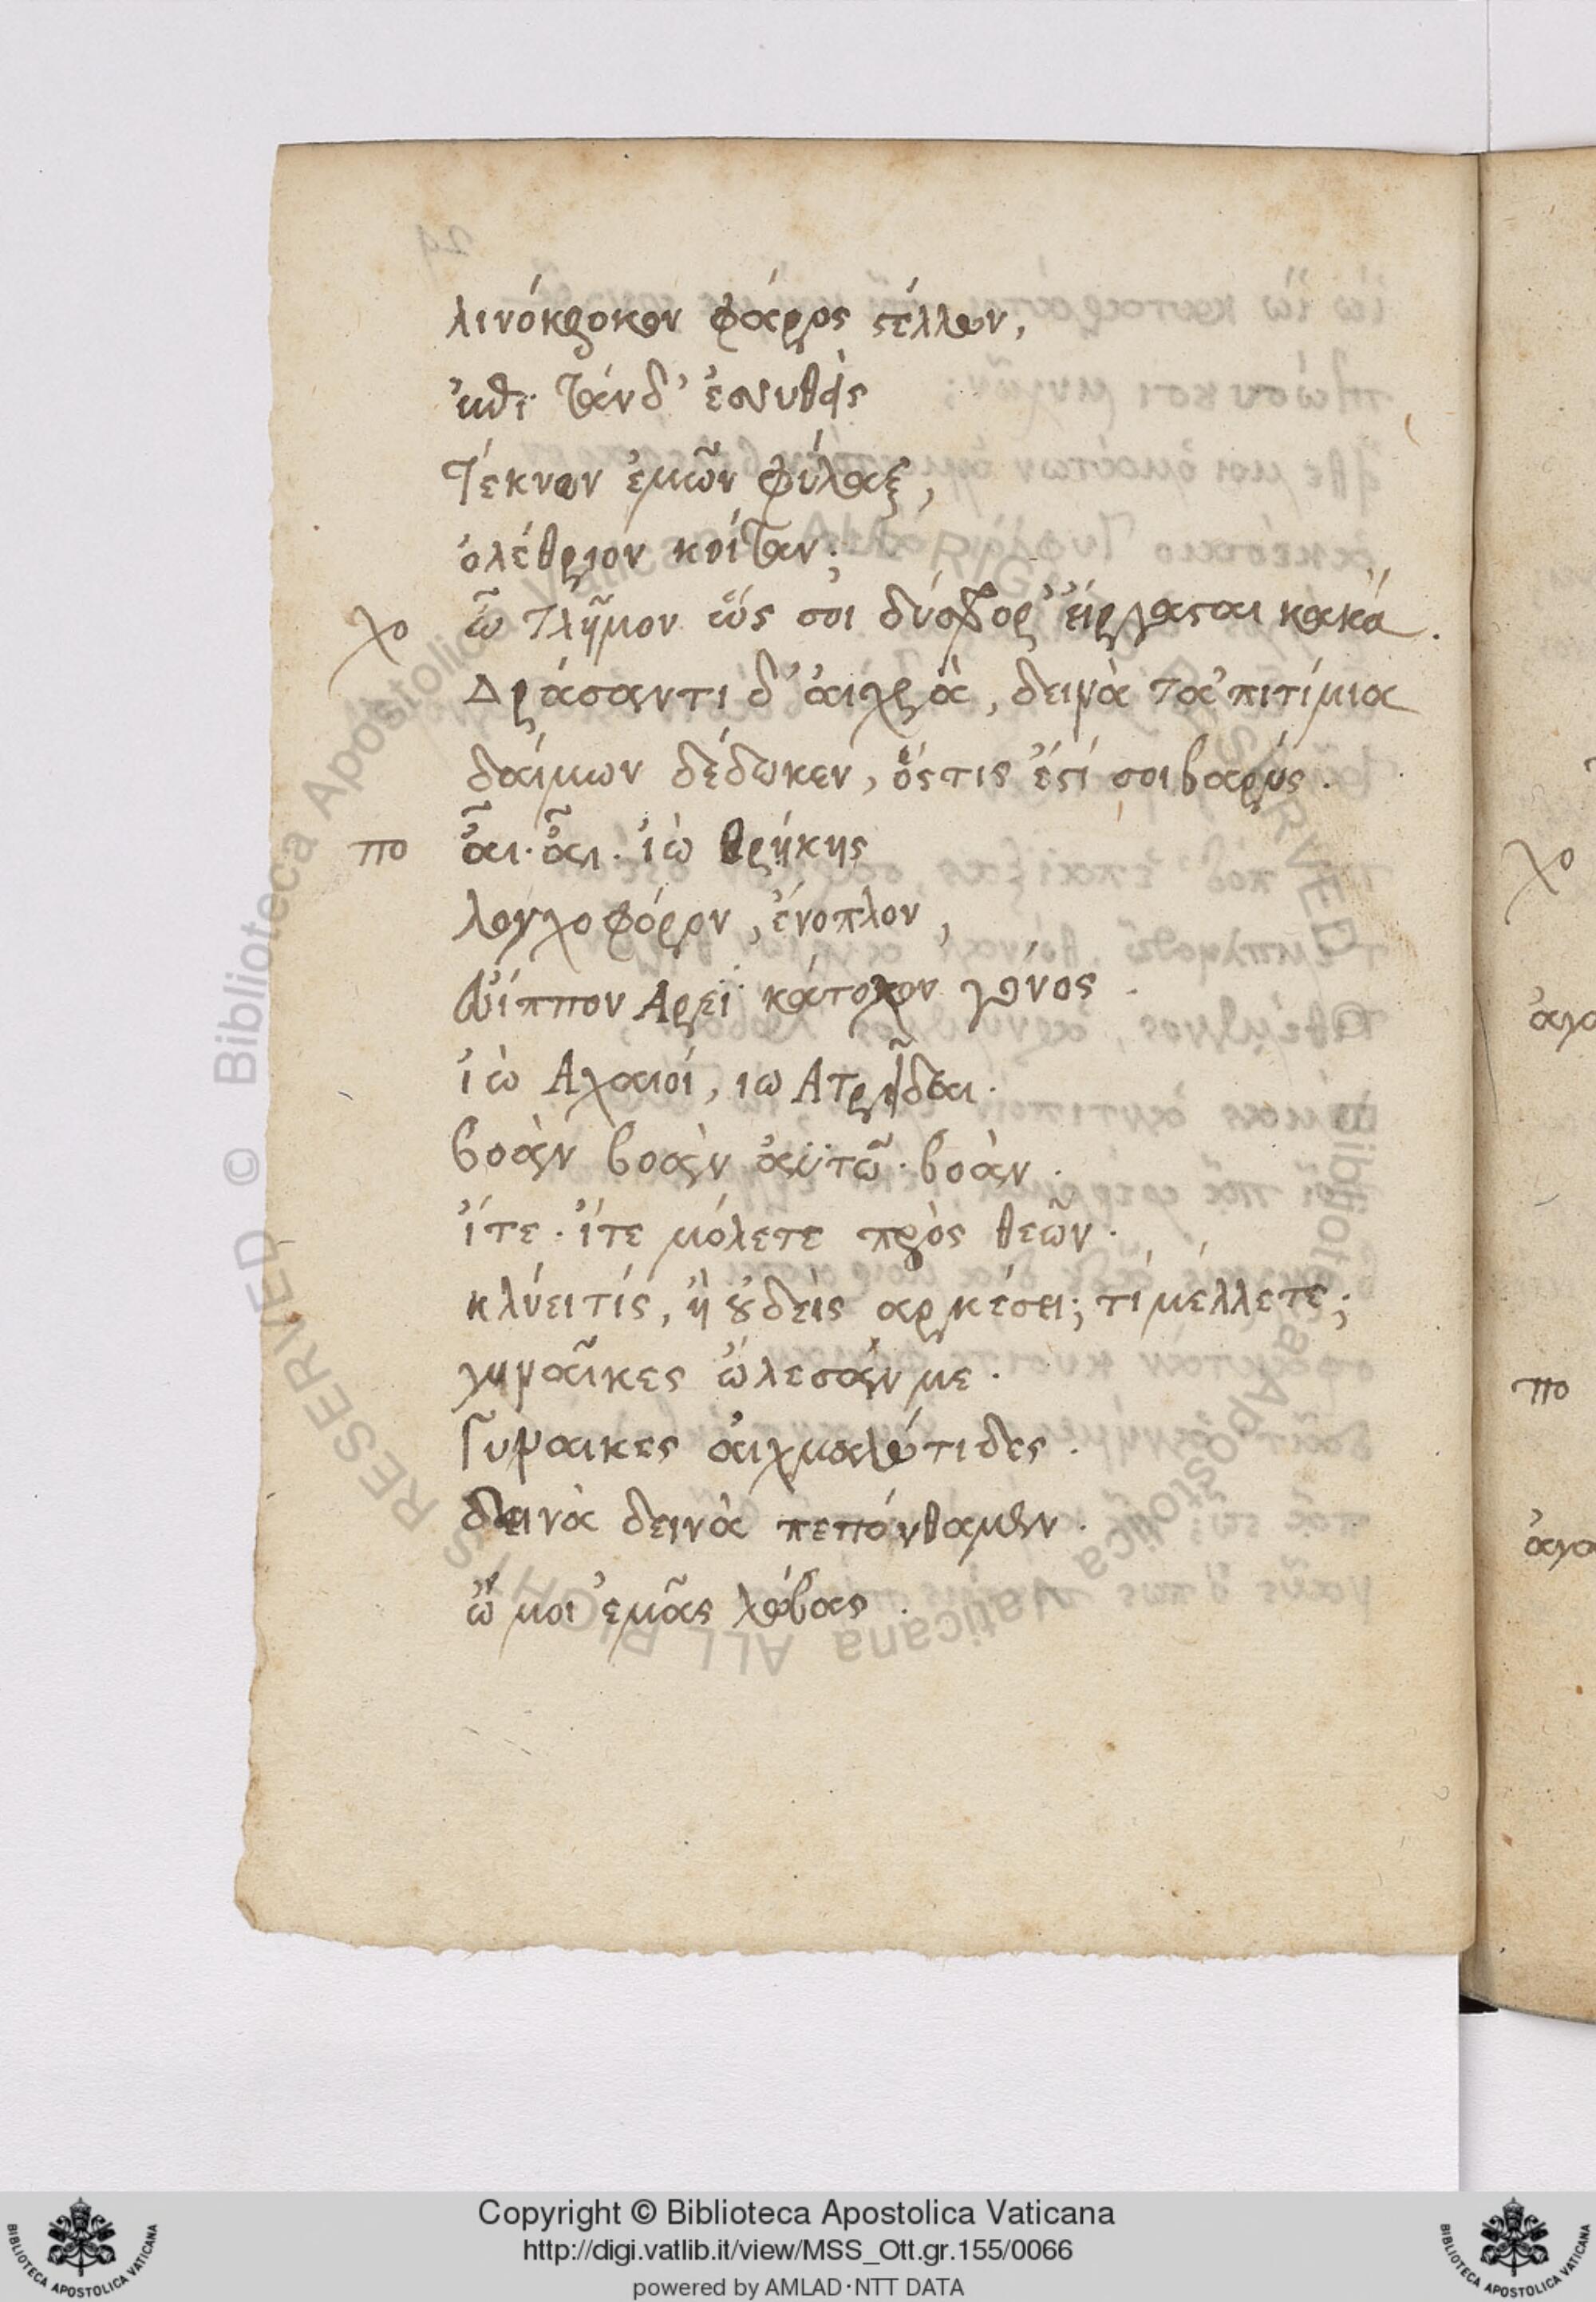 λινόκροκον φάρος στέλλων,
ἐπὶ τάνδ' ἐσυθεὶς
Τέκνων ἐμῶν φύλαξ,
ὀλέθριον κοίταν;
χο ὦ τλῆμον ὥς σοι δύσφορ' εἴργασται κακά.
Δράσαντι δ' αἰσχρὰ, δεινὰ τἀπιτίμια
δαίμων δέδωκεν, ὅςτις ἐστί σοι βαρύς.
πο αἶ· αἶ· ἰὼ θρήκης
λογχοφόρον, ἔνοπλον,
εὔιππον Αρεϊ κάτοχον γένος.
ἰὼ Αχαιοί, ιω Ατρεῖδαι.
βοὰν βοὰν ἀϋτῶ· βοὰν.
ἴτε· ἴτε μόλετε πρὸς θεῶν.
κλύει τίς, ἢ οὐδεὶς αρκέσει; τί μέλλετε;
γυναῖκες ὤλεσάν με.
Γυναικες αἰχμαλώτιδες.
δεινὰ δεινὰ πεπόνθαμεν.
ὤ μοι ἐμᾶς λώβας.
χο
ἀγα
πο
ἀγα
Copyright © Biblioteca Apostolica Vaticana
http://digi.vatlib.it/view/MSS_Ott.gr.155/0066
powered by AMLAD·NTT DATA